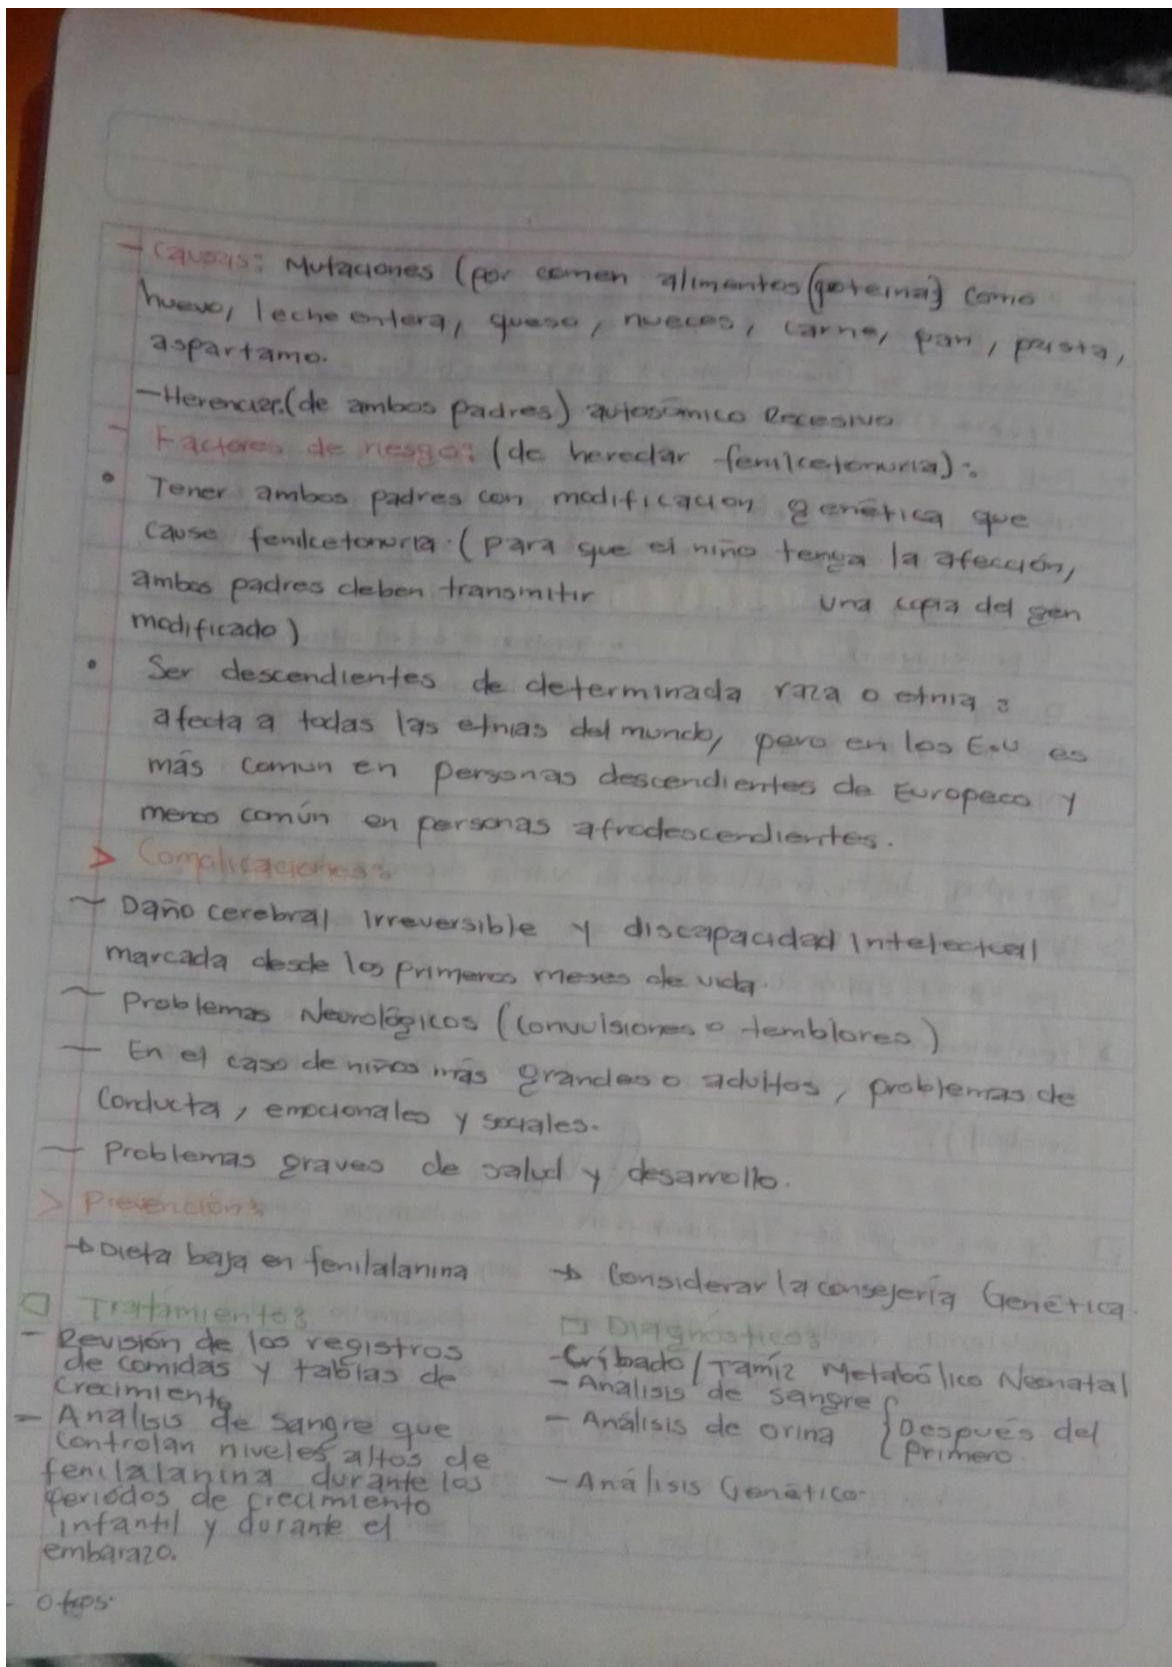 - Causas: Mutaciones (por comen alimentos (proteina) como
huevo, leche entera, queso, nueces, carne, pan, pasta,
aspartamo.
- Herencia: (de ambos padres) autosómico Recesivo
- Factores de riesgo: (de heredar fenilcetonuria):
• Tener ambos padres con modificacion genética que
cause fenilcetonuria. (para que el niño tenga la afección,
ambos padres deben transmitir una copia del gen
modificado)
• Ser descendientes de determinada raza o etnia :
afecta a todas las etnias del mundo, pero en los E.U es
más comun en personas descendientes de Europeos y
menos común en personas afrodescendientes.
> Complicaciones:
- Daño cerebral irreversible y discapacidad Intelectual
marcada desde los primeros meses de vida.
- Problemas Neurológicos (convulsiones o temblores)
- En el caso de niños más grandes o adultos, problemas de
Conducta, emocionales y sociales.
- Problemas graves de salud y desarrollo.
> Prevención:
→ Dieta baja en fenilalanina → Considerar la consejería Genética.
□ Tratamiento:
- Revisión de los registros
de comidas y tablas de
crecimiento
- Analisis de sangre que
controlan niveles altos de
fenilalanina durante los
periodos de crecimiento
infantil y durante el
embarazo.
- Otros.
□ Diagnostico:
- Cribado / Tamiz Metabólico Neonatal
- Análisis de sangre
- Análisis de orina { Después del
primero.
- Análisis Genético.